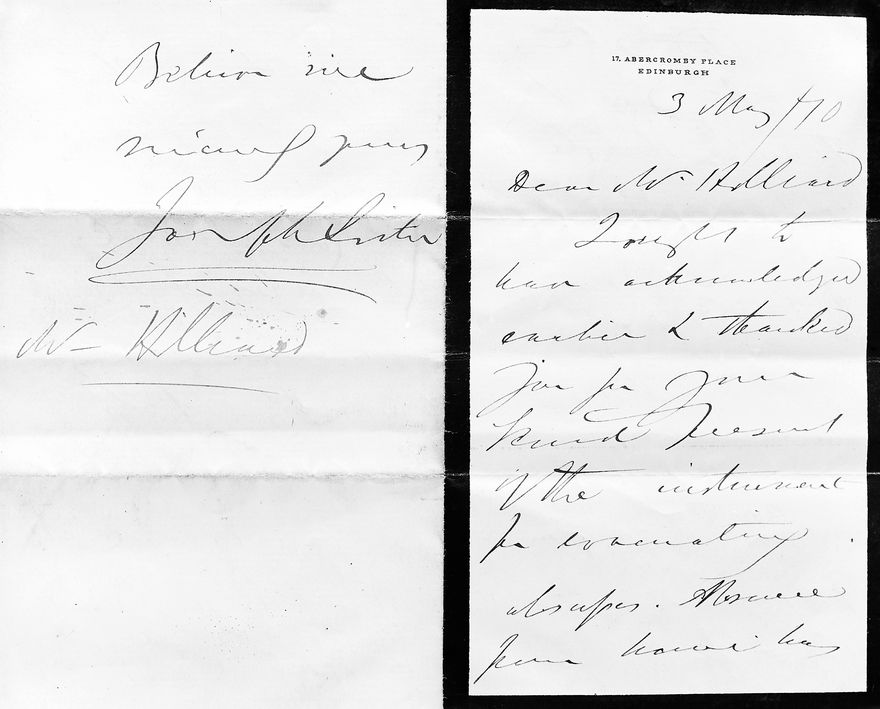 17, ABERCROMBY PLACE
EDINBURGH
3 May /70
Dear Mr Hilliard
I ought to
have acknowledged
earlier & thanked
you for your
kind present
of the instrument
for evacuating
abscess. Absence
from home has
Believe me
sincerely yours
Joseph Lister
Mr Hilliard